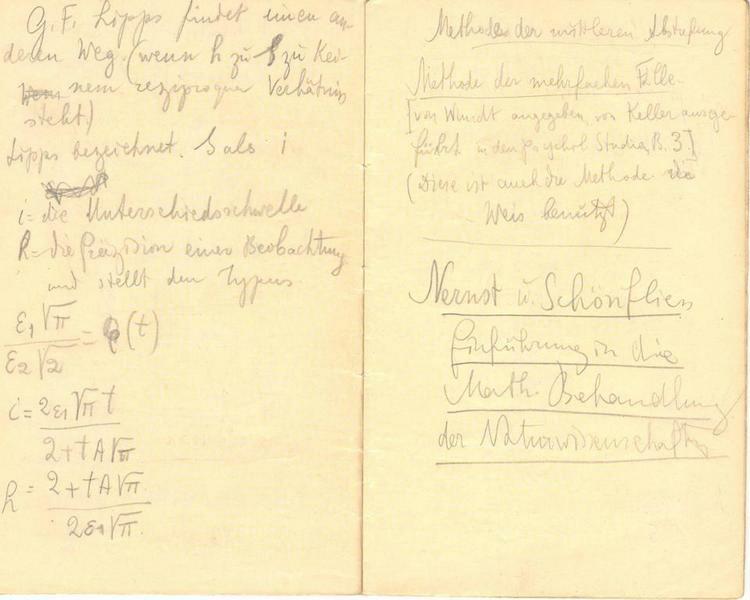 G. F. Lipps findet einen an-
deren Weg. (wenn h zu S zu kei-
nem reziproquen Verhältnis
steht)
Lipps bezeichnet. S als i
i = die Unterschiedsschwelle
h = die Präzision einer Beobachtung
und stellt den Typus
ε₁√π / ε₂√2 = φ(t)
i = 2ε₁√π t / 2 + t A√π
h = 2 + t A√π / 2ε₁√π.
Methode der mittleren Abstufung
Methode der mehrfachen Fälle.
[von Wundt angegeben, von Keller ausge-
führt in den Psychol Studien, B. 3.]
(Diese ist auch die Methode die
Weis benützt)
Nernst u. Schönflies
Einführung in die
Math. Behandlung
der Naturwissenschaften